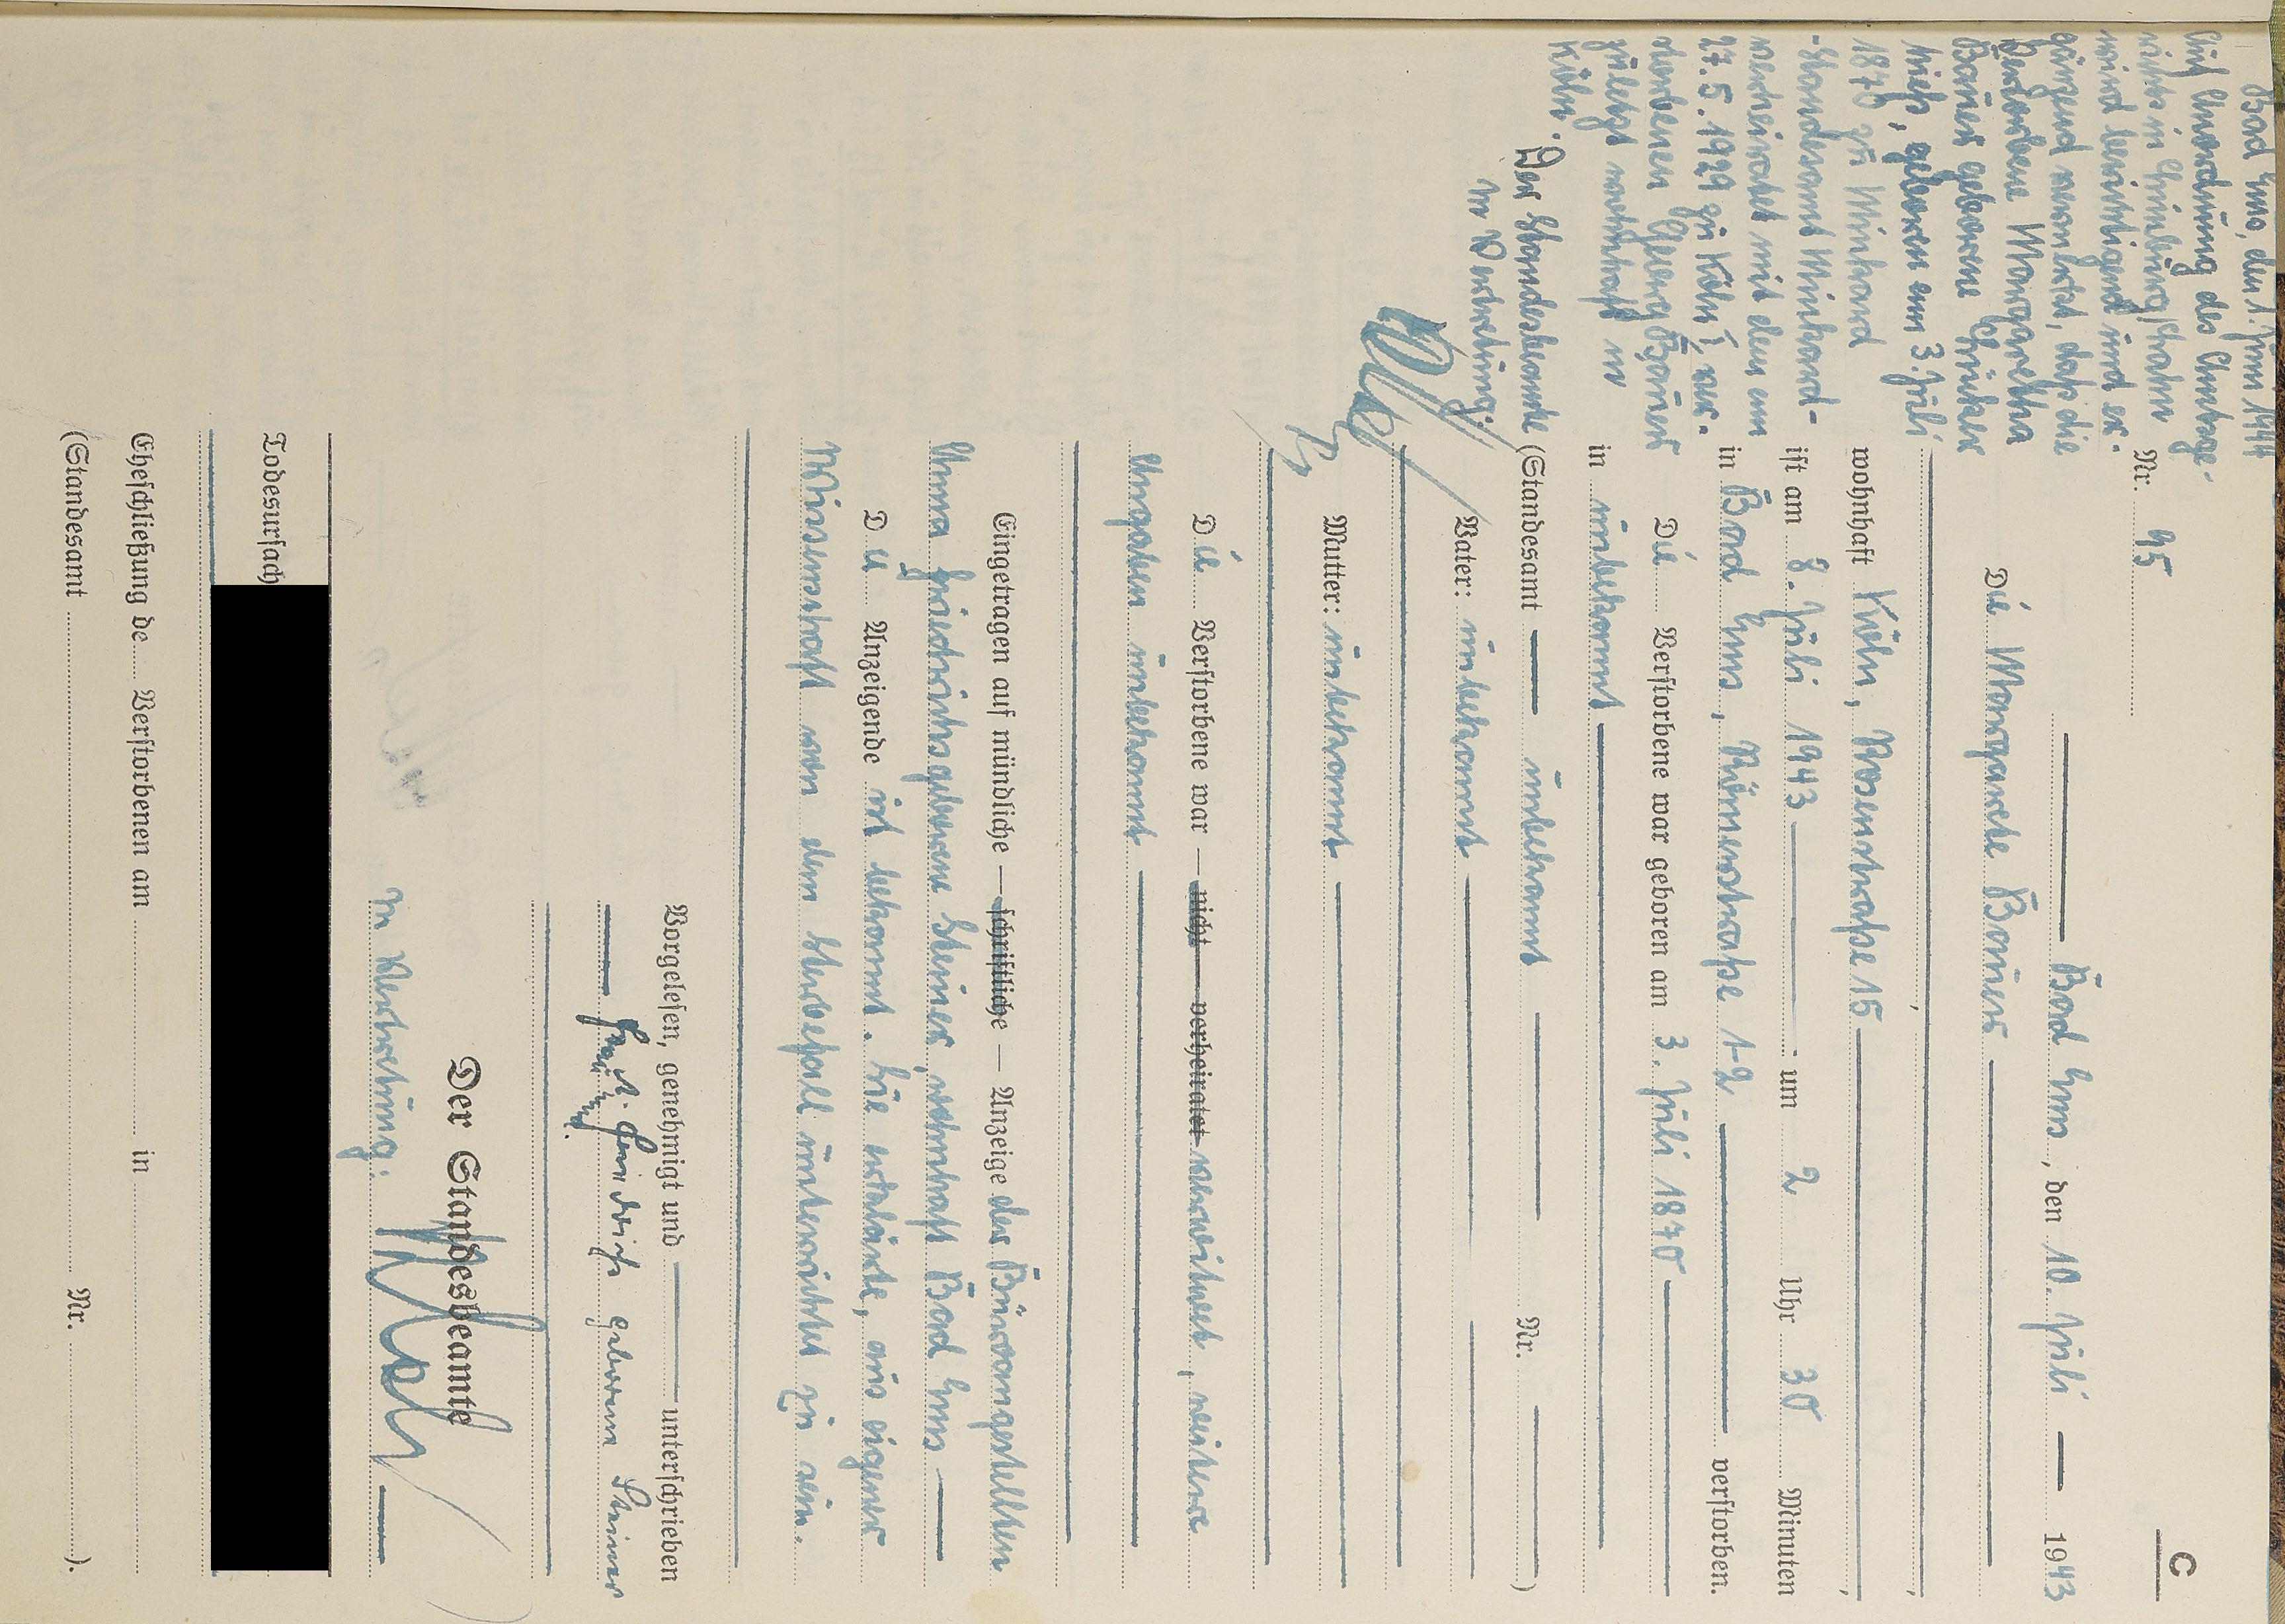 C
Nr. 95
Bad Ems, den 10. Juli 1943
Die Margarete Bauer
wohnhaft Köln, Rosenstraße 15
ist am 8. Juli 1943 um 2 Uhr 30 Minuten
in Bad Ems, Römerstraße 1-2 verstorben.
Die Verstorbene war geboren am 3. Juli 1870
in unbekannt
(Standesamt — unbekannt Nr. )
Vater: unbekannt
Mutter: unbekannt
Die Verstorbene war — nicht — verheiratet verwitwet, weitere
Angaben unbekannt
Eingetragen auf mündliche — schriftliche — Anzeige der Büroangestellten
Anna Friedrichs geborene Steiner, wohnhaft Bad Ems
Die Anzeigende ist bekannt. Sie erklärte, aus eigener
Wissenschaft von dem Sterbefall unterrichtet zu sein.
Vorgelesen, genehmigt und unterschrieben
geborene Steiner
Der Standesbeamte
In Vertretung:
Todesursach
Eheschließung de Verstorbenen am in
(Standesamt Nr. ).
Bad Ems, den 1. Juni 1944
Auf Anordnung des Amtsge-
richts in
wird berichtigend und er-
gänzend vermerkt, daß die
Verstorbene Margaretha
Bauer geborene
geboren am 3. Juli
1870 zu Minkard
-Standesamt Minkard-
verheiratet mit dem am
27. 5. 1929 zu Köln I, ver-
storbenen Georg Bauer
zuletzt wohnhaft in
Köln.
Der Standesbeamte
In Vertretung: